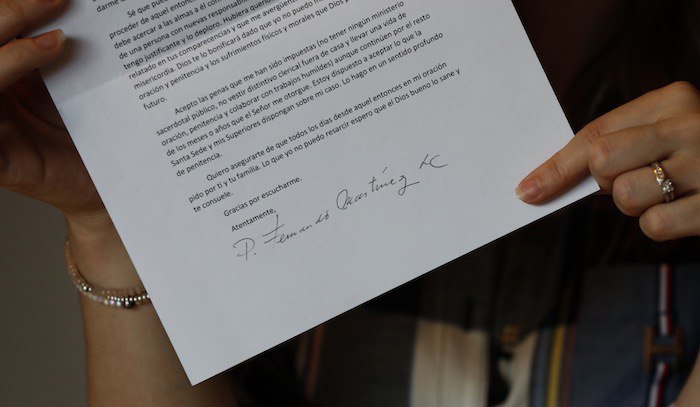 darme lo
Sé que pue
proceder de aquel entonc
debe acercar a las almas a él con
de una persona con nuevas responsabil
tengo justificante y lo deploro. Hubiera querido
relatado en tus comparecencias y que me avergüen
misericordia. Dios te lo bonificará dado que yo no puedo
oración y penitencia y los sufrimientos físicos y morales que Dios p
futuro.
Acepto las penas que me han sido impuestas (no tener ningún ministerio
sacerdotal público, no vestir distintivo clerical fuera de casa y llevar una vida de
oración, penitencia y colaborar con trabajos humildes) aunque continúen por el resto
de los meses o años que el Señor me otorgue. Estoy dispuesto a aceptar lo que la
Santa Sede y mis Superiores dispongan sobre mi caso. Lo hago en un sentido profundo
de penitencia.
Quiero asegurarte de que todos los días desde aquel entonces en mi oración
pido por ti y tu familia. Lo que yo no puedo resarcir espero que el Dios bueno lo sane y
te consuele.
Gracias por escucharme.
Atentamente,
P. Fernando Martínez LC